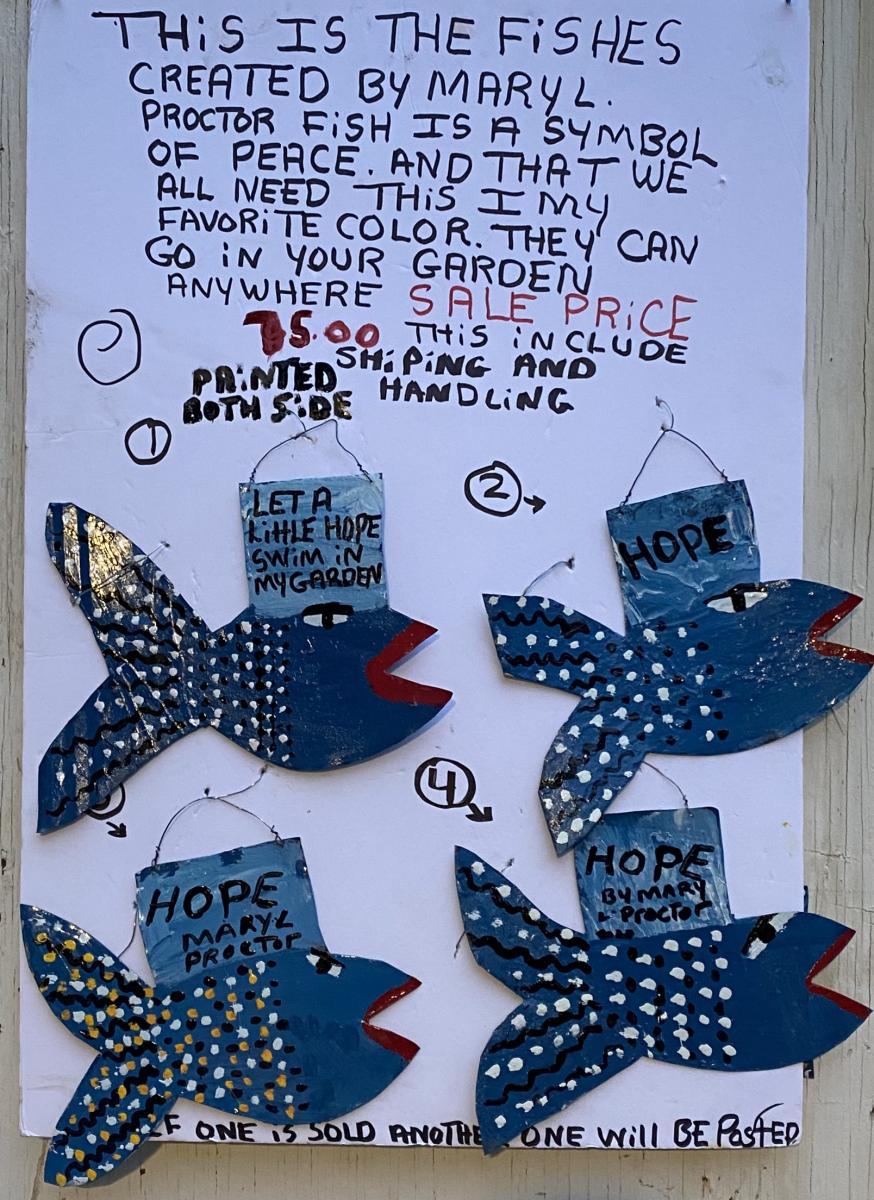 THiS IS THE FiSHES
CREATED BY MARY L.
PROCTOR FiSH IS A SYMBOL
OF PEACE. AND THAT WE
ALL NEED THiS I MY
FAVORiTE COLOR. THEY CAN
GO iN YOUR GARDEN
ANYWHERE SALE PRiCE
75.00 THiS iNCLUDE
SHiPiNG AND
HANDLiNG
PAiNTED
BOTH SiDE
1
2
LET A
LiTTLE HOPE
SWiM iN
MY GARDEN
HOPE
4
HOPE
MARY.L
PROCTOR
HOPE
BY MARY
L Proctor
IF ONE iS SOLD ANOTHER ONE WiLL BE PosTED